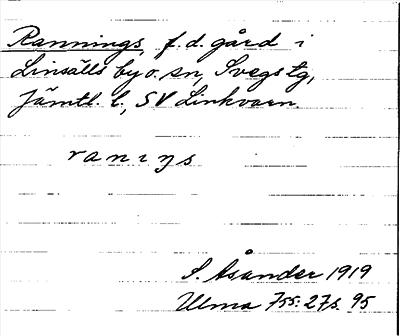 Rannings, f.d. gård i
Linsälls by o. sn, Svegs tg,
Jämtl. l., SV Linkvarn.
ranıŋs
S. Åsander 1919
Ulma 755:27 s. 95